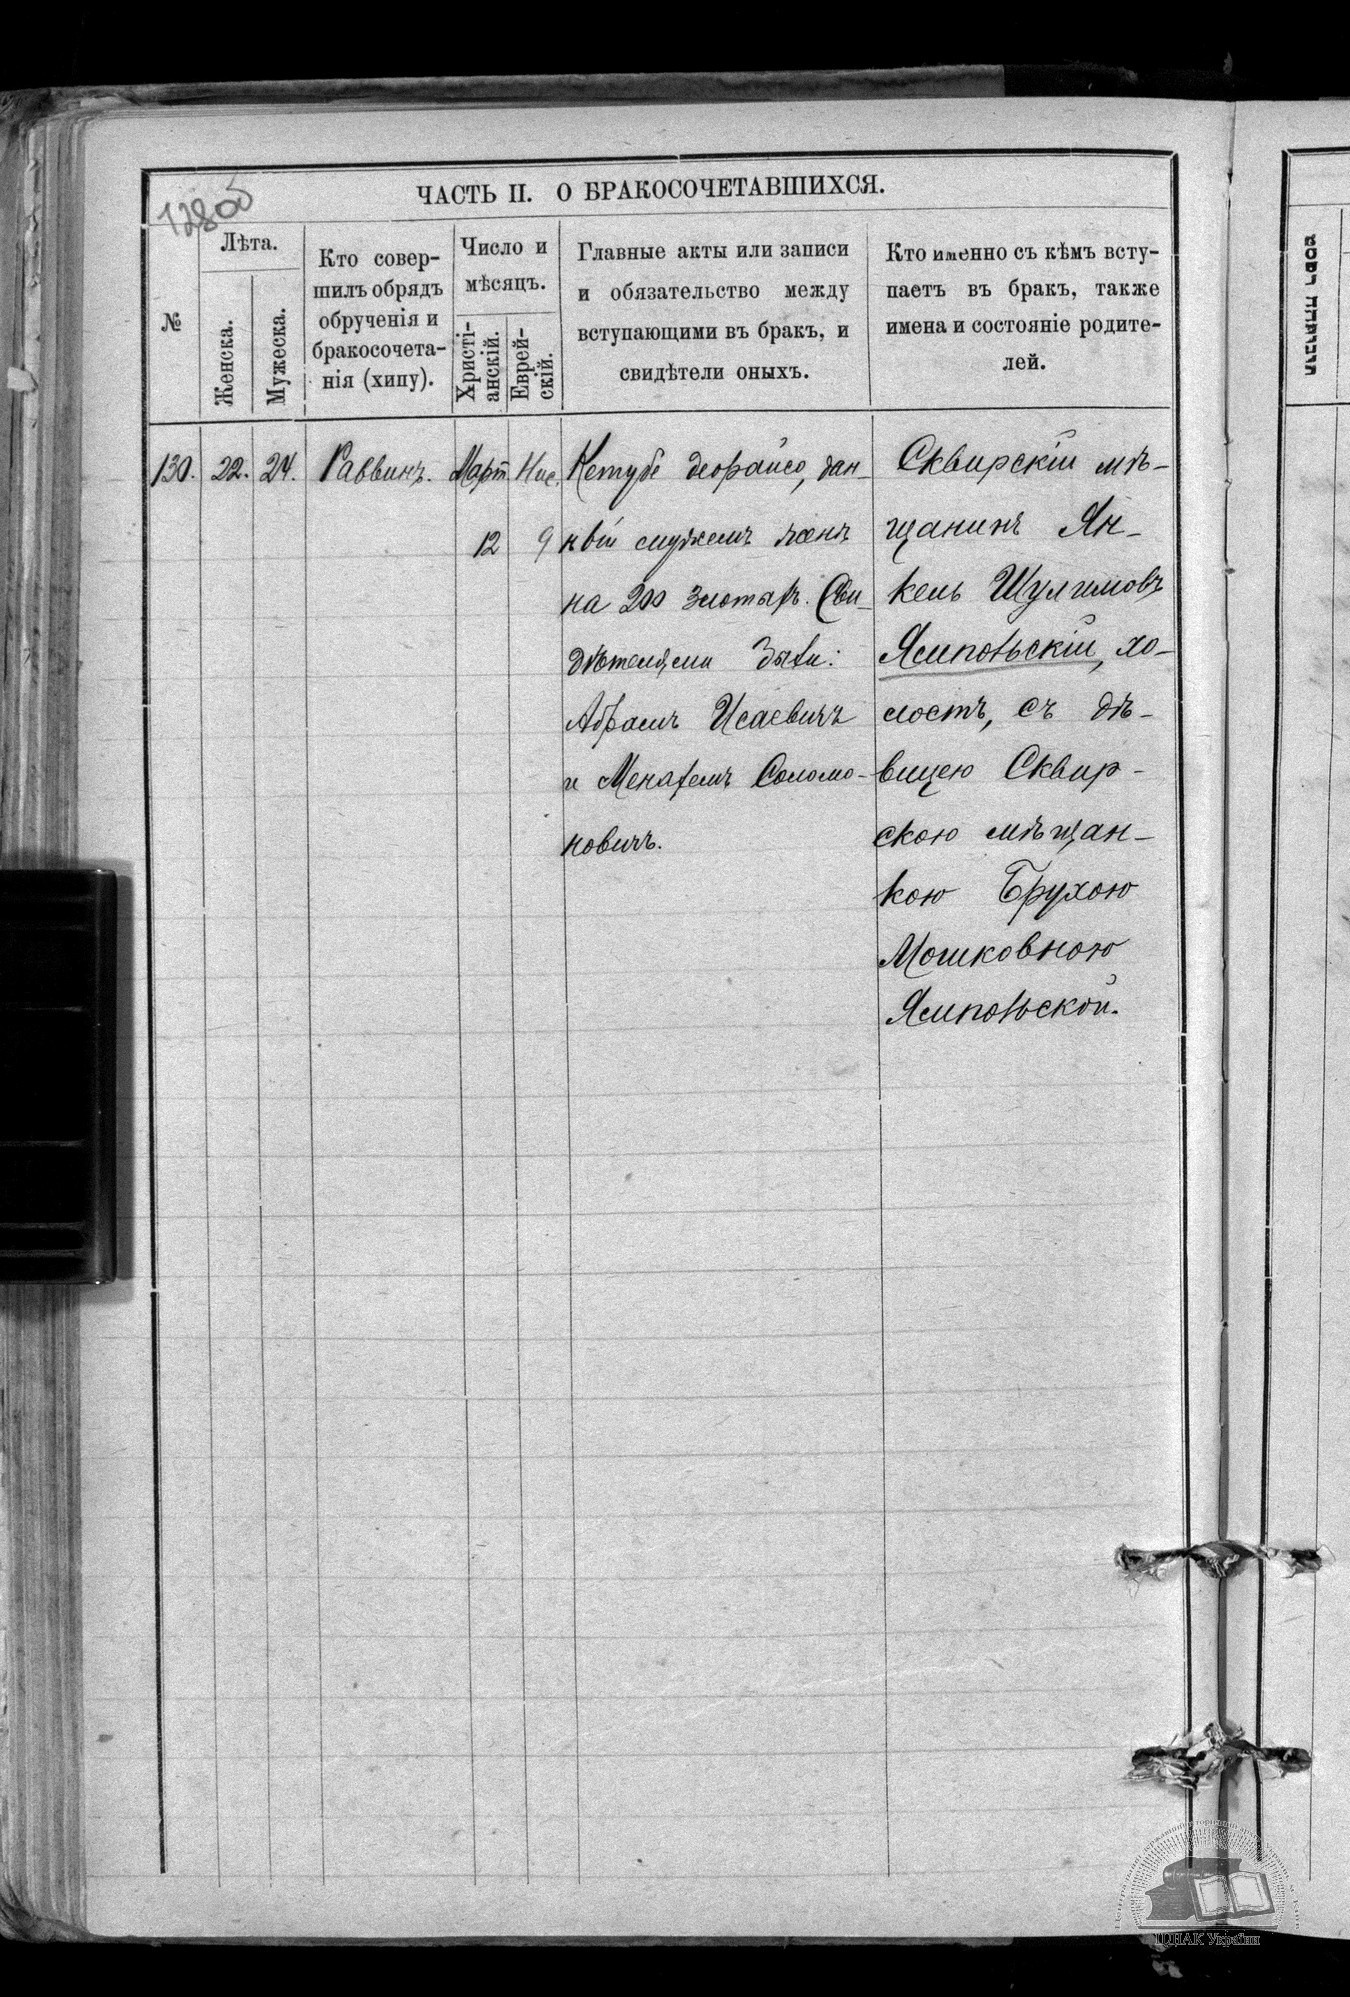 1280
ЧАСТЬ II. О БРАКОСОЧЕТАВШИХСЯ.
№
Лѣта.
Женска.
Мужеска.
Кто совер-
шилъ обрядъ
обрученія и
бракосочета-
нія (хипу).
Число и
мѣсяцъ.
Христі-
анскій.
Еврей-
скій.
Главные акты или записи
и обязательство между
вступающими въ бракъ, и
свидѣтели оныхъ.
Кто именно съ кѣмъ всту-
паетъ въ бракъ, также
имена и состояніе родите-
лей.
130. 22. 24. Раввинъ. Март Нис.
12 9
Кетубе деорайсо, дан-
ный мужемъ женѣ
на 200 злотыхъ. Сви-
дѣтелями были:
Абрамъ Исаевичъ
и Менахемъ Соломо-
новичъ.
Сквирскій мѣ-
щанинъ Ян-
кель Шулимовъ
Ямпольскій, хо-
лостъ, съ дѣ-
вицею Сквир-
скою мѣщан-
кою Брухою
Мошковною
Ямпольской.
ЦДІАК України